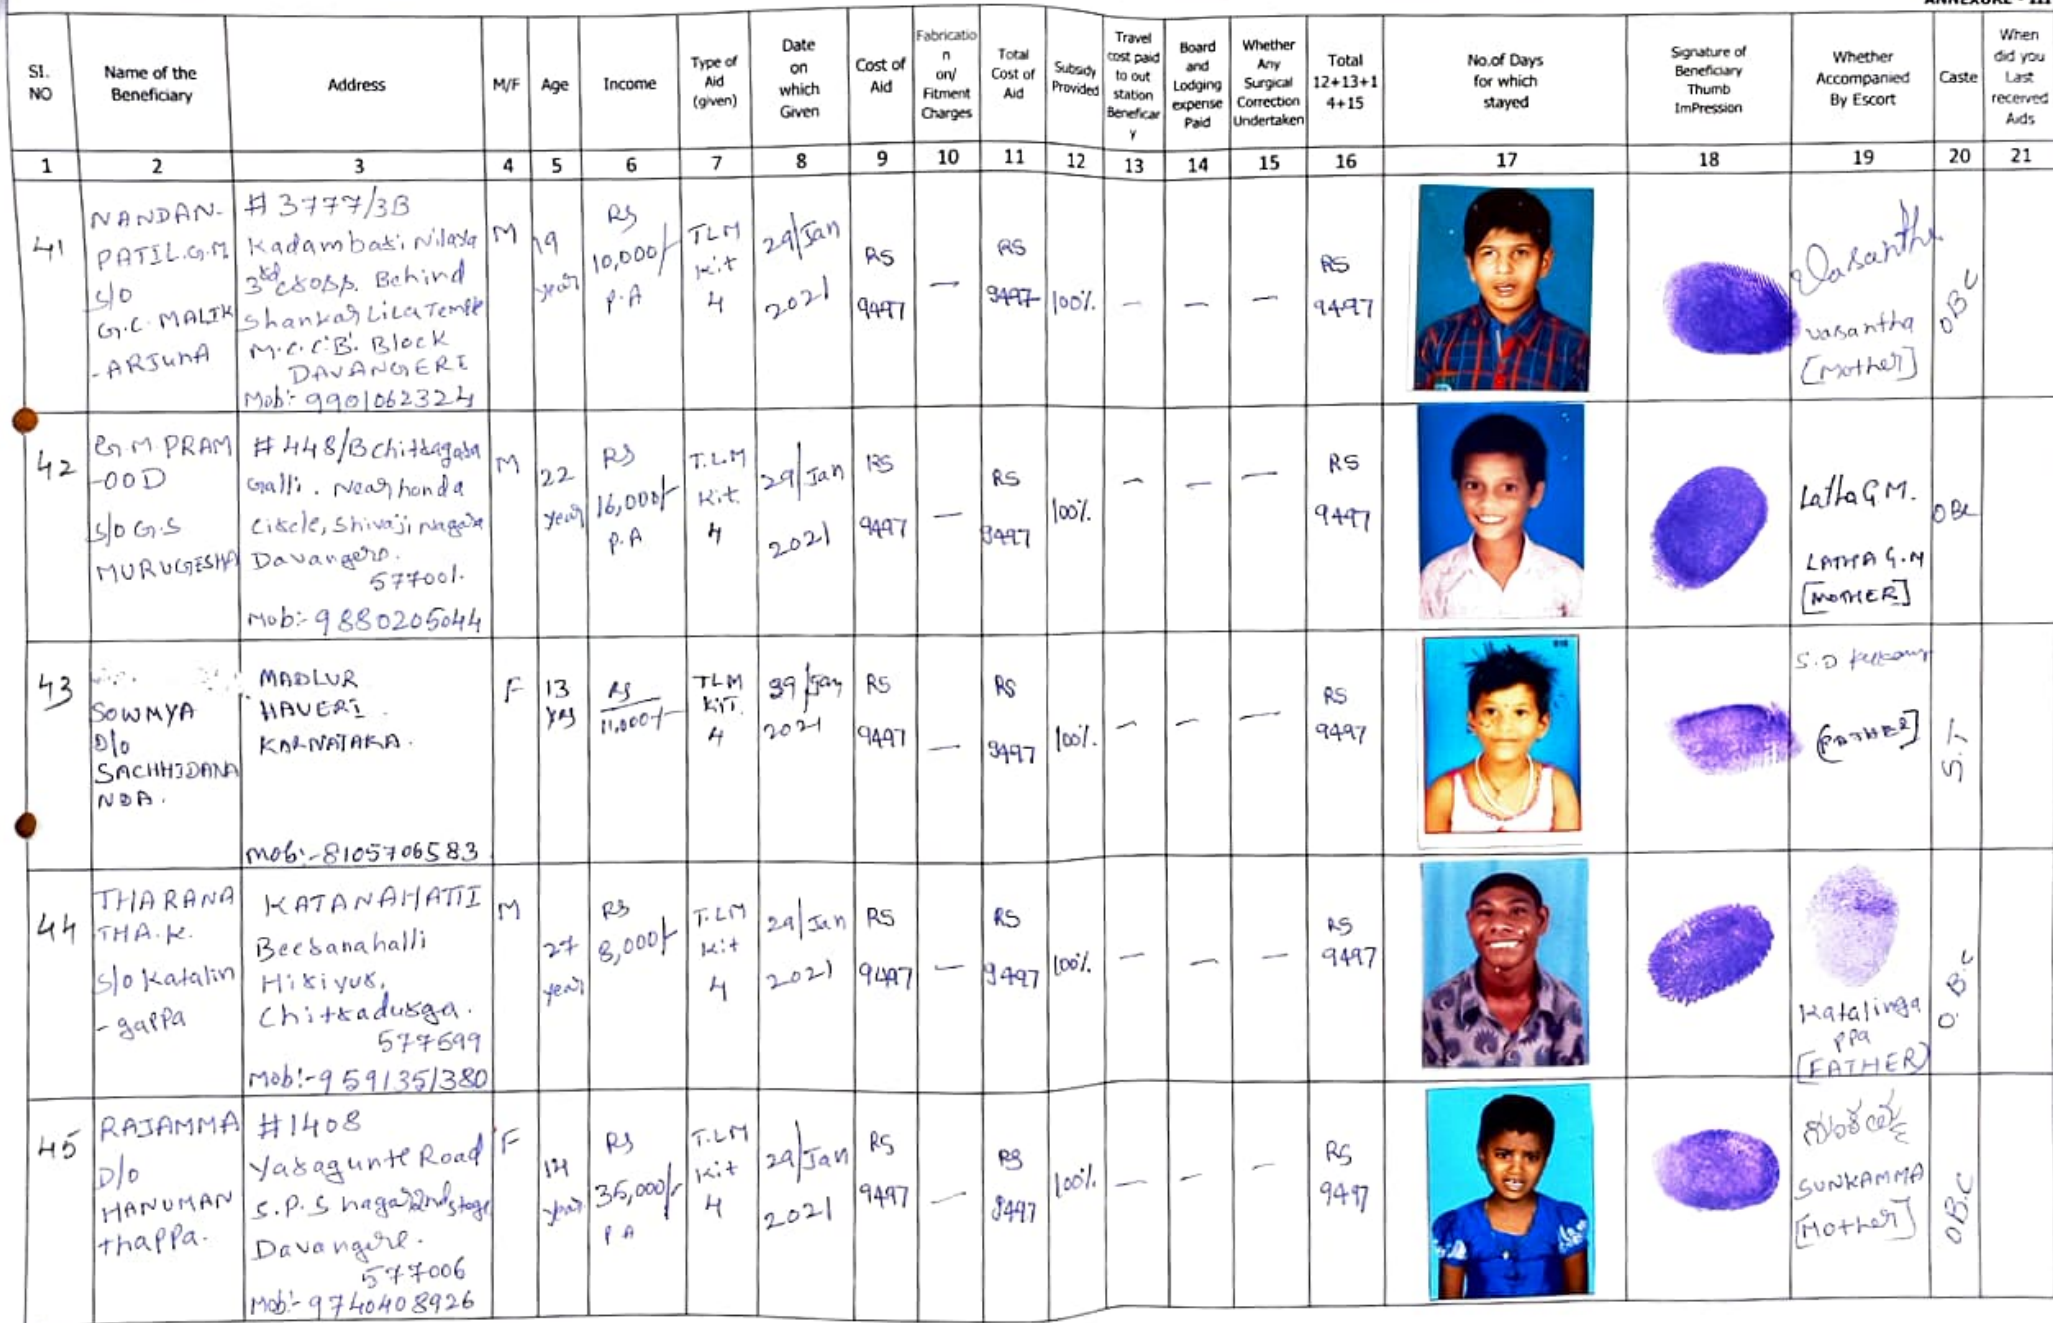 ANNEXURE - III
SI. NO
Name of the Beneficiary
Address
M/F
Age
Income
Type of Aid (given)
Date on which Given
Cost of Aid
Fabricatio n on/ Fitment Charges
Total Cost of Aid
Subsidy Provided
Travel cost paid to out station Beneficar y
Board and Lodging expense Paid
Whether Any Surgical Correction Undertaken
Total 12+13+1 4+15
No.of Days for which stayed
Signature of Beneficiary Thumb ImPression
Whether Accompanied By Escort
Caste
When did you Last recerved Aids
1 2 3 4 5 6 7 8 9 10 11 12 13 14 15 16 17 18 19 20 21
41
NANDAN-
PATIL.G.M
S/O
G.C. MALIK
-ARJUNA
# 3777/3B
Kadambari Nilaya
3rd cross. Behind
Shankar Lila Temple
M.C.C.'B'. Block
DAVANGERI
Mob:- 9901062324
M
19
year
RS
10,000/-
P.A
TLM
kit
4
29/Jan
2021
RS
9497
—
RS
9497
100%.
—
—
—
RS
9497
Vasantha
vasantha
[Mother]
OBC
42
G.M. PRAM
-OOD
S/O G.S
MURUGESHA
# 448/B Chitragara
Galli. Near honda
Circle, Shivaji nagara
Davangere.
577001.
Mob:- 9880205044
M
22
year
RS
16,000/-
P.A
T.L.M
Kit.
4
29/Jan
2021
RS
9497
—
RS
9497
100%.
—
—
—
RS
9497
Latha G M.
LATHA G.M
[MOTHER]
OBC
43
SOWMYA
D/o
SACHHIDANA
NDA.
MADLUR
HAVERI.
KARNATAKA.
Mob:-8105706583
F
13
YRS
RS
11,000/-
TLM
KIT.
4
39/Jan
2021
RS
9497
—
RS
9497
100%.
—
—
—
RS
9497
S.D
[FATHER]
S.T
44
THARANA
THA.K.
S/o Katalin
-gappa
KATANAHATTI
Beeranahalli
Hiriyur,
Chitradurga.
577599
Mob:-9591351380
M
27
year
RS
8,000/-
T.LM
Kit
4
29/Jan
2021
RS
9497
—
RS
9497
100%.
—
—
—
RS
9497
Katalinga
ppa
[FATHER]
O.B.C
45
RAJAMMA
D/o
HANUMAN
thappa.
#1408
Yaragunte Road
S.P.S nagar 2nd stage
Davangere.
577006
Mob:- 9740408926
F
14
year
RS
35,000/-
P A
T.LM
Kit
4
29/Jan
2021
RS
9497
—
RS
9497
100%.
—
—
—
RS
9497
SUNKAMMA
[Mother]
OB.C